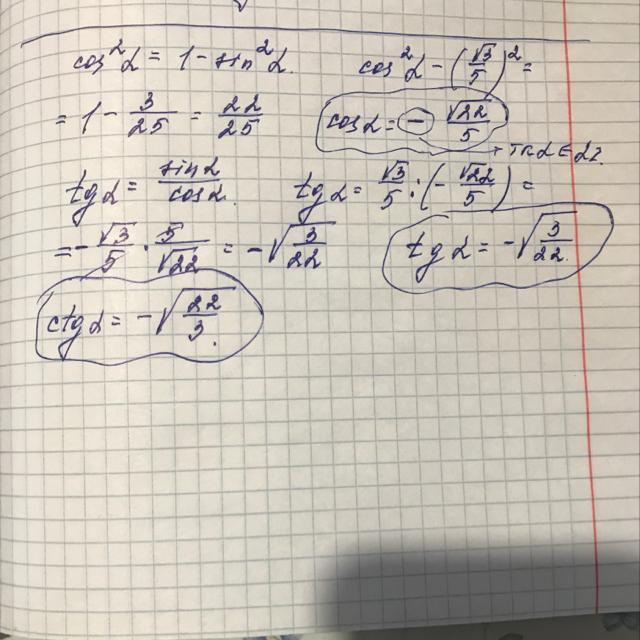 cos²α = 1 - sin²α. cos²α - (√3/5)² =
= 1 - 3/25 = 22/25 cosα = - √22/5
→ т.к α ∈ 2
tgα = sinα/cosα. tgα = √3/5 : (- √22/5) =
= - √3/5 · 5/√22 = - √(3/22) tgα = - √(3/22).
ctgα = - √(22/3).